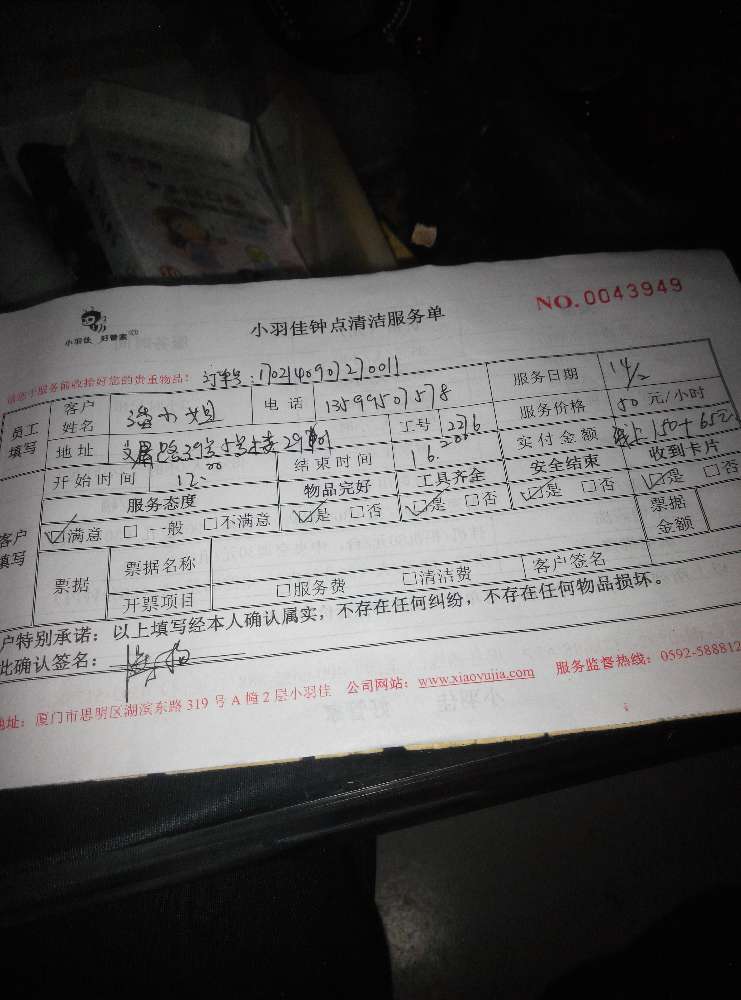 小羽佳 好管家
小羽佳钟点清洁服务单
NO.0043949
请您于服务前收拾好您的贵重物品: 订单号:1702140907270011
员工填写 客户姓名 潘小姐 电话 13599507578 服务日期 14/2
地址 文屏路39号5号楼29 工号 2276 服务价格 50元/小时
开始时间 12:00 结束时间 16:20 实付金额 线上150+65元
服务态度 物品完好 工具齐全 安全结束 收到卡片
客户填写 ☑满意 □一般 □不满意 ☑是 □否 ☑是 □否 ☑是 □否 ☑是 □否
票据 票据名称 票据金额
开票项目 □服务费 □清洁费 客户签名
户特别承诺: 以上填写经本人确认属实,不存在任何纠纷,不存在任何物品损坏。
此确认签名:
地址: 厦门市思明区湖滨东路 319 号 A 幢 2 层小羽佳 公司网站: www.xiaoyujia.com 服务监督热线: 0592-588812